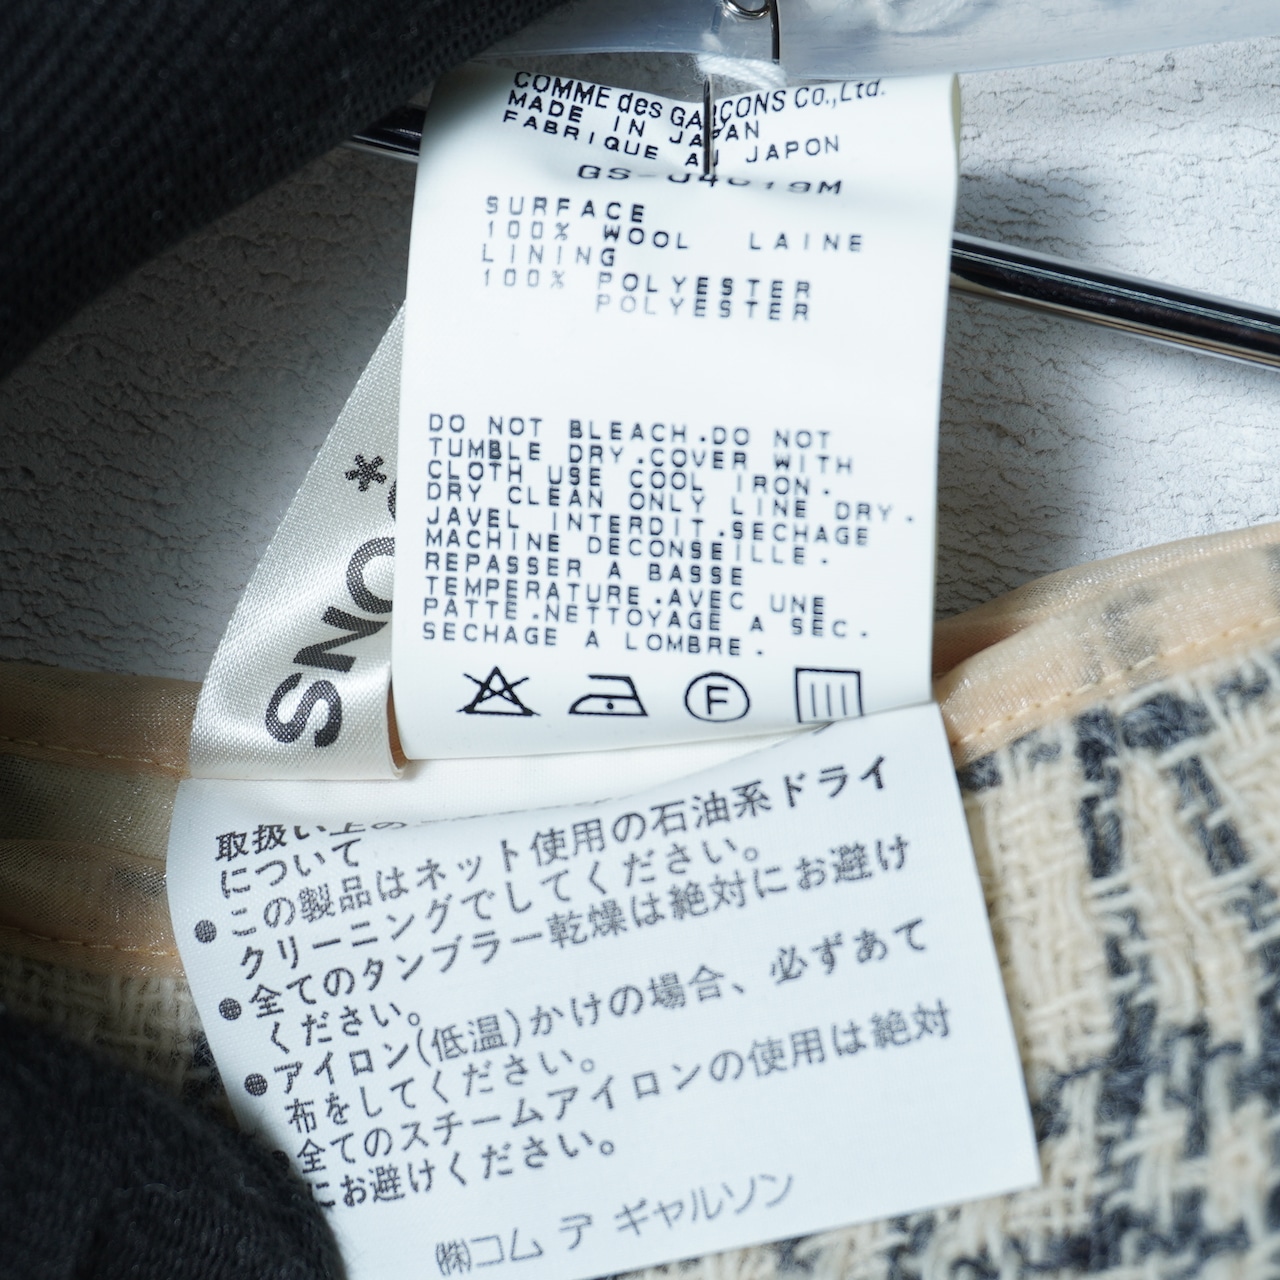 COMME des GARÇONS Co.,Ltd.
MADE IN JAPAN
FABRIQUE AU JAPON
SURFACE
100% WOOL LAINE
LINING
100% POLYESTER
POLYESTER
DO NOT BLEACH.DO NOT
TUMBLE DRY.COVER WITH
CLOTH USE COOL IRON.
DRY CLEAN ONLY LINE DRY.
JAVEL INTERDIT.SECHAGE
MACHINE DECONSEILLE.
REPASSER A BASSE
TEMPERATURE.AVEC UNE
PATTE.NETTOYAGE A SEC.
SECHAGE A LOMBRE.
F
ONS*
取扱い上の
について
●この製品はネット使用の石油系ドライ
クリーニングでしてください。
●全てのタンブラー乾燥は絶対にお避け
ください。
●アイロン(低温)かけの場合、必ずあて
布をしてください。
全てのスチームアイロンの使用は絶対
にお避けください。
㈱コム デ ギャルソン